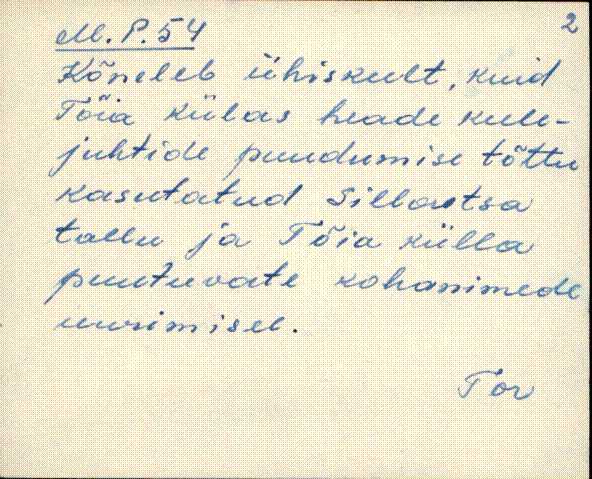 2
M. P. 54
Kõneleb ühiskeelt, kuid
Tõia külas heade keele-
juhtide puudumise tõttu
kasutatud Sillaotsa
talu ja Tõia külla
puutuvate kohanimede
uurimisel.
Tor